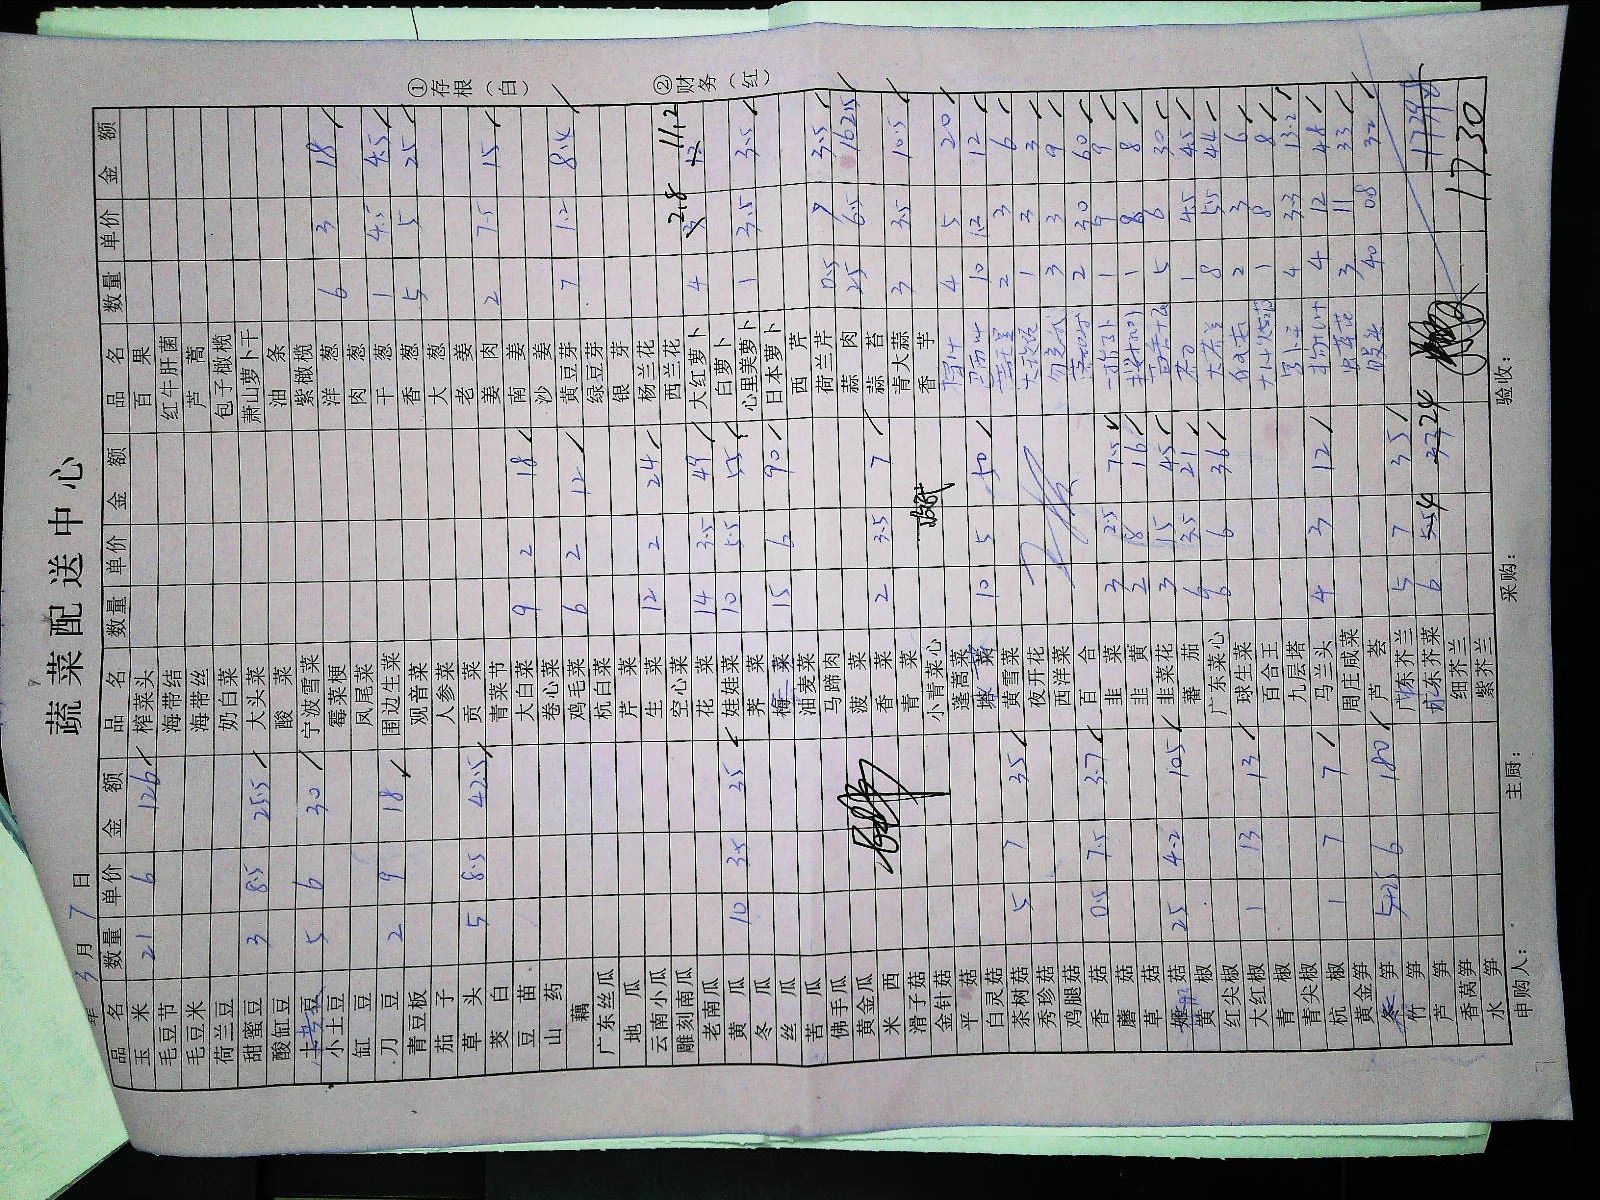 蔬菜配送中心
年 3 月 7 日
品 名 数量 单价 金 额
玉 米 21 6 126
毛豆节
毛豆米
荷兰豆
甜蜜豆 3 8.5 25.5
酸豇豆
小土豆 5 6 30
豇 豆
刀 豆 2 9 18
青豆板
茄 子
草 头 5 8.5 42.5
茭 白
豆 苗
山 药
藕
广东丝瓜
地 瓜
云南小瓜
雕刻南瓜
老南瓜
黄 瓜 10 3.5 35
冬 瓜
丝 瓜
苦 瓜
佛手瓜
黄金瓜
米 西
滑子菇
金针菇
平 菇
白灵菇
茶树菇 5 7 35
秀珍菇
鸡腿菇
香 菇 0.5 7.5 3.7
蘑 菇
草 菇
菇 25 4.2 105
黄 椒
红尖椒
大红椒 1 13 13
青 椒
青尖椒
杭 椒 1 7 7
黄金笋
冬 笋 6 180
竹 笋
芦 笋
香莴笋
水 笋
品 名 数量 单价 金 额
榨菜头
海带结
海带丝
奶白菜
大头菜
酸 菜
宁波雪菜
霉菜梗
凤尾菜
围边生菜
观音菜
人参菜
贡 菜
青菜节
大白菜 9 2 18
卷心菜
鸡毛菜 6 2 12
杭白菜
芹 菜
生 菜 12 2 24
空心菜
花 菜 14 3.5 49
娃娃菜 10 5.5 55
荠 菜
梅 菜 15 6 90
油麦菜
马蹄肉
菠 菜
香 菜 2 3.5 7
青 菜
小青菜心
蓬蒿菜
菜 10 5 50
黄雪菜
夜开花
西洋菜
百 合
韭 菜 3 2.5 7.5
韭 黄 2 8 16
韭菜花 3 15 45
蕃 茄 6 3.5 21
广东菜心 6 6 36
球生菜
百合王
九层塔
马兰头 4 3 12
周庄咸菜
芦 荟
广东芥兰 5 7 35
广东芥菜 6 5.5 4 33 24
细芥兰
紫芥兰
品 名 数量 单价 金 额
百 果
红牛肝菌
芦 蒿
包子橄榄
萧山萝卜干
油 条
紫橄榄
洋 葱 6 3 18
肉 葱
干 葱 1 4.5 4.5
香 葱 5 5 25
大 葱
老 姜
姜 肉 2 7.5 15
南 姜
沙 姜
黄豆芽 7 1.2 8.4
绿豆芽
银 芽
杨兰花
西兰花
大红萝卜 4 3 2.8 12 11.2
白萝卜
心里美萝卜 1 3.5 3.5
日本萝卜
西 芹
荷兰芹 0.5 7 3.5
蒜 肉 25 6.5 162.5
蒜 苔
青大蒜 3 3.5 10.5
香 芋
4 5 20
10 1.2 12
2 3 6
1 3 3
3 3 9
2 30 60
1 9 9
1 8 8
5 6 30
1 4.5 4.5
8 5.5 44
2 3 6
1 8 8
4 3.3 13.2
4 12 48
虫草花 3 11 33
40 0.8 32
1739.8
1730
申购人： 主厨： 采购： 验收：
①存根（白）
②财务（红）